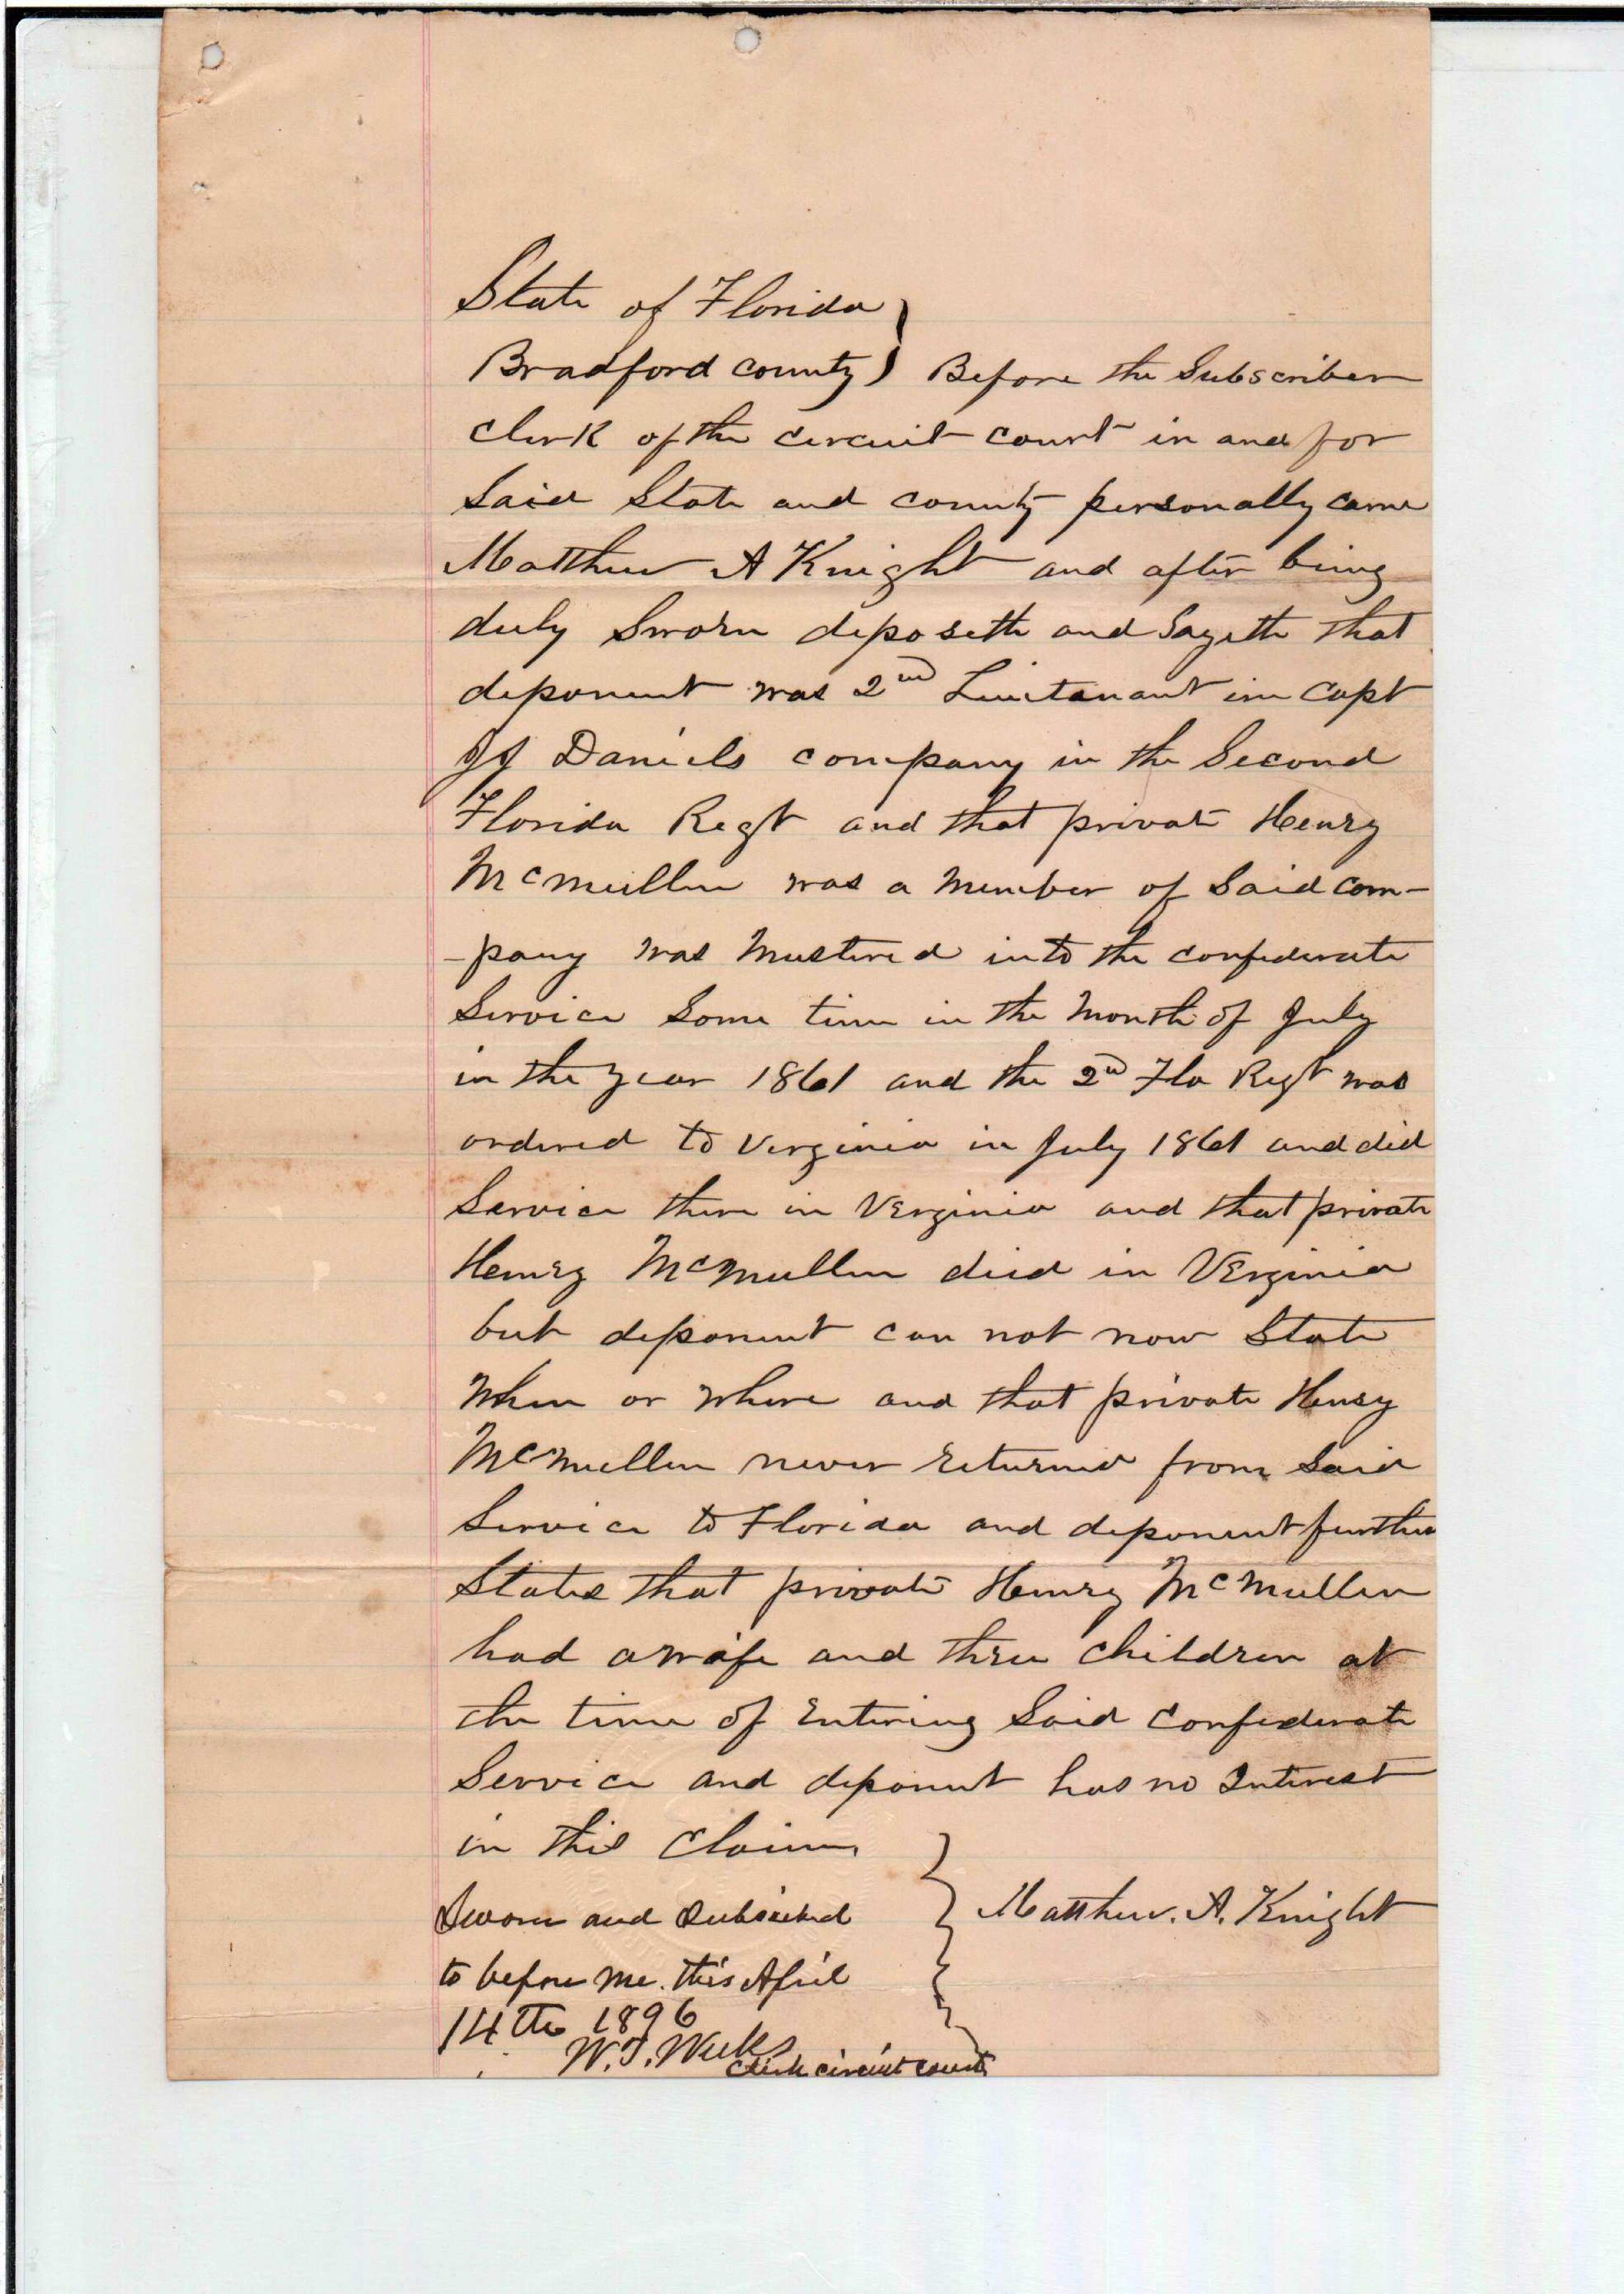 State of Florida )
Bradford county ) Before the Subscriber
Clerk of the circuit court in and for
Said State and county personally came
Matthew A Knight and after being
duly Sworn deposeth and Sayeth that
deponent was 2nd Lieutenant in Capt
Daniels company in the Second
Florida Regt and that private Henry
McMullen was a Member of Said com-
-pany was Mustered into the confederate
Service Some time in the Month of July
in the year 1861 and the 2nd Fla Regt was
ordered to Verginia in July 1861 and did
Service there in Verginia and that private
Henry McMullen died in Verginia
but deponent can not now State
When or Where and that private Henry
McMullen never returned from Said
Service to Florida and deponent further
States that private Henry McMullen
had a wife and three children at
the time of Entering Said Confederate
Service and deponent has no Interest
in this Claim
Sworn and Subscribed
to before me. this April
14th 1896
Matthew. A. Knight
W. T. Weeks
Clerk circuit court